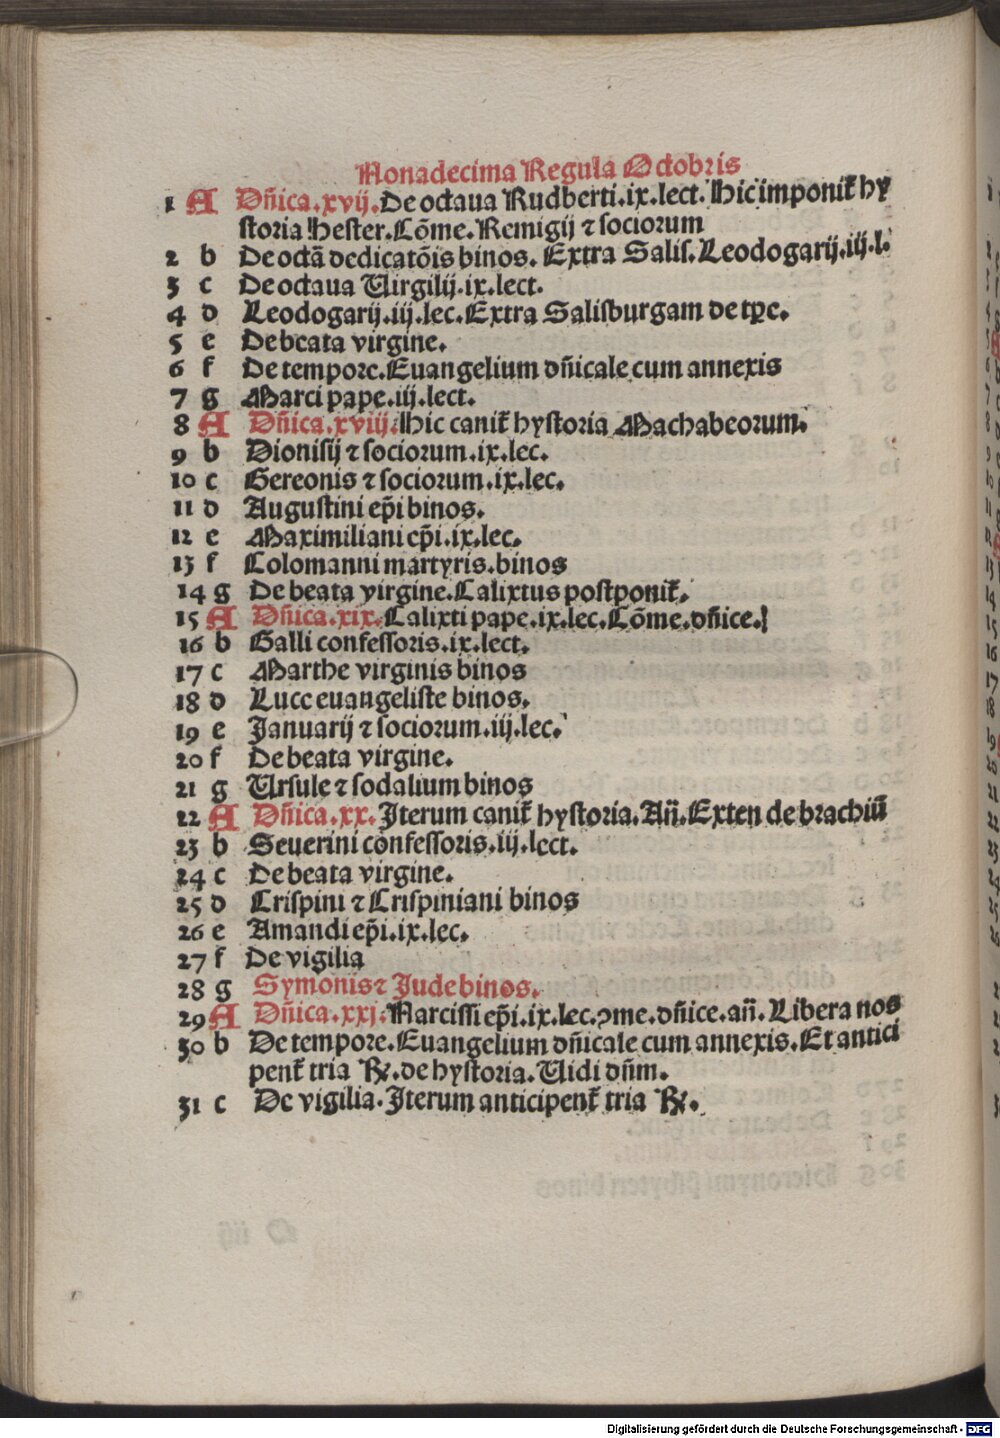 Nonadecima Regula Octobris
1 A Dñica.xvij.De octaua Rudberti.ix.lect. Hic imponit̃ hy
storia Hester.Cõme.Remigij ⁊ sociorum
2 b De octã dedicatõis binos. Extra Salis.Leodogarij.iij.l.
3 c De octaua Uirgilij.ix.lect.
4 d Leodogarij.iij.lec.Extra Salisburgam de tp̃e.
5 e De beata virgine.
6 f De tempore.Euangelium dñicale cum annexis
7 g Marci pape.iij.lect.
8 A Dñica.xviij.Hic canit̃ hystoria Machabeorum.
9 b Dionisij ⁊ sociorum.ix.lec.
10 c Gereonis ⁊ sociorum.ix.lec.
11 d Augustini ep̃i binos.
12 e Maximiliani ep̃i.ix.lec.
13 f Colomanni martyris.binos
14 g De beata virgine.Calixtus postponit̃.
15 A Dñica.xix.Calixti pape.ix.lec.Cõme.dñice.
16 b Galli confessoris.ix.lect.
17 c Marthe virginis binos
18 d Luce euangeliste binos.
19 e Januarij ⁊ sociorum.iij.lec.
20 f De beata virgine.
21 g Ursule ⁊ sodalium binos
22 A Dñica.xx.Iterum canit̃ hystoria.Añ.Exten de brachiũ
23 b Seuerini confessoris.iij.lect.
24 c De beata virgine.
25 d Crispini ⁊ Crispiniani binos
26 e Amandi ep̃i.ix.lec.
27 f De vigilia
28 g Symonis ⁊ Jude binos.
29 A Dñica.xxj.Narcissi ep̃i.ix.lec.ꝯme.dñice.añ.Libera nos
30 b De tempore.Euangelium dñicale cum annexis.Et antici
pent̃ tria ℟.de hystoria.Uidi dñm.
31 c De vigilia.Iterum anticipent̃ tria ℟.
Digitalisierung gefördert durch die Deutsche Forschungsgemeinschaft - DFG